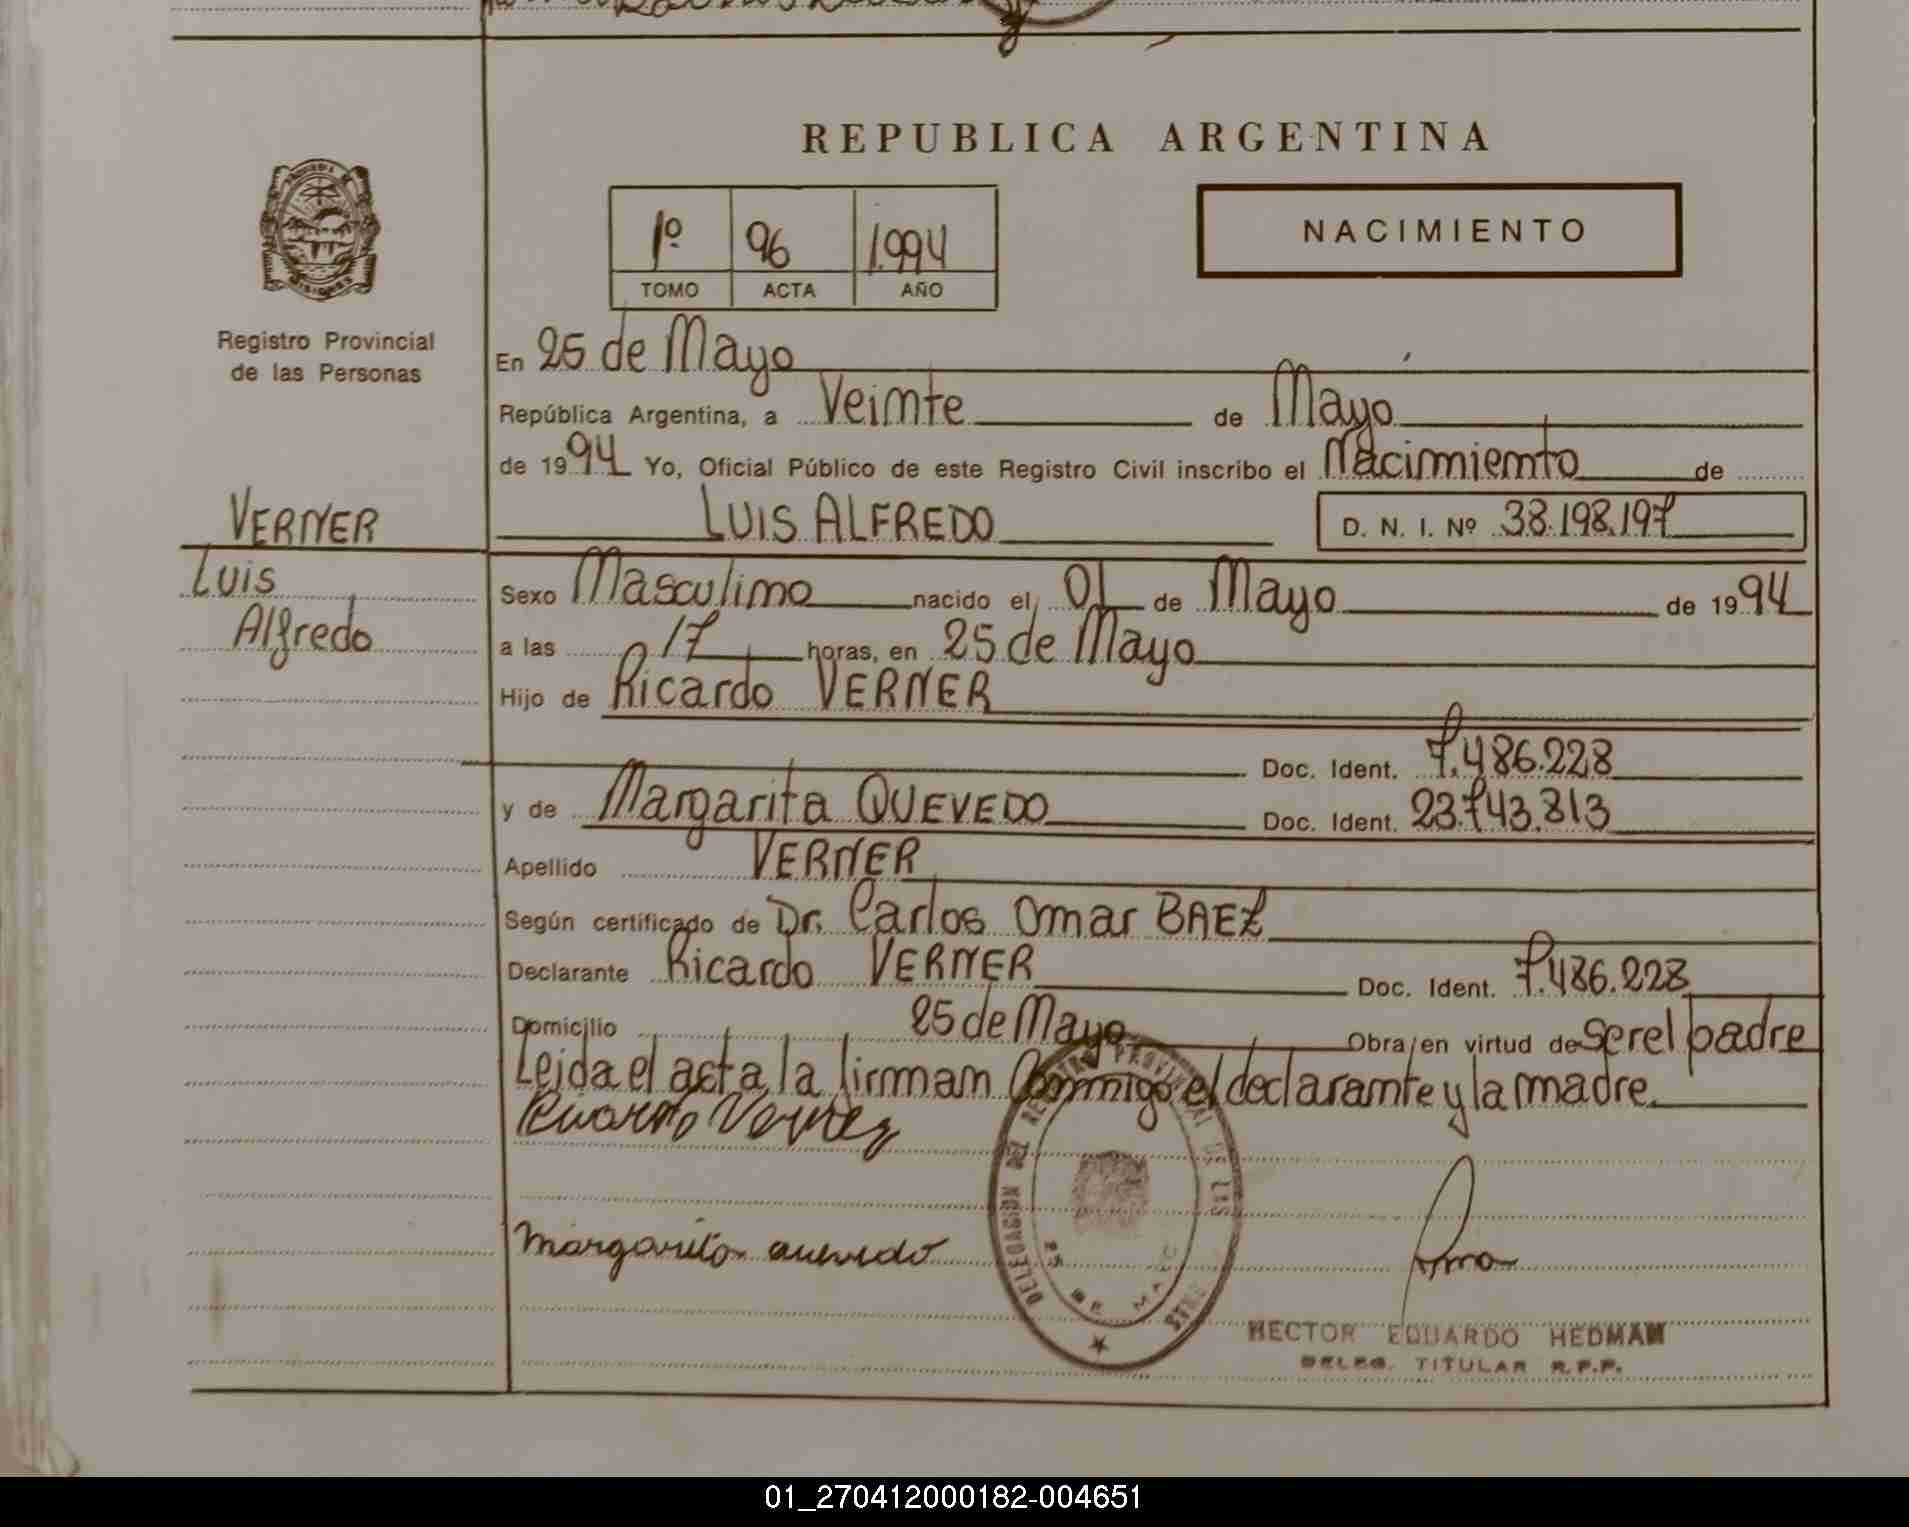 REPUBLICA ARGENTINA
1º 96 1.994
TOMO ACTA AÑO
NACIMIENTO
Registro Provincial
de las Personas
VERNER
Luis
Alfredo
En 25 de Mayo
República Argentina, a Veinte de Mayo
de 1994 Yo, Oficial Público de este Registro Civil inscribo el Nacimiento de
LUIS ALFREDO D. N. I. Nº 38.198.197
Sexo Masculino nacido el 01 de Mayo de 1994
a las 17 horas, en 25 de Mayo
Hijo de Ricardo VERNER
Doc. Ident. 7.486.228
y de Margarita QUEVEDO Doc. Ident. 23.743.813
Apellido VERNER
Según certificado de Dr. Carlos Omar BAEZ
Declarante Ricardo VERNER Doc. Ident. 7.486.228
Domicilio 25 de Mayo Obra en virtud de Ser el padre
Leida el acta, la firman Conmigo el declarante y la madre.
Ricardo Verner
DELEGACION DEL REGISTRO PROVINCIAL DE LAS
25 DE MAYO
Margarita Quevedo
HECTOR EDUARDO HEDMAN
DELEG. TITULAR R.P.P.
01_270412000182-004651